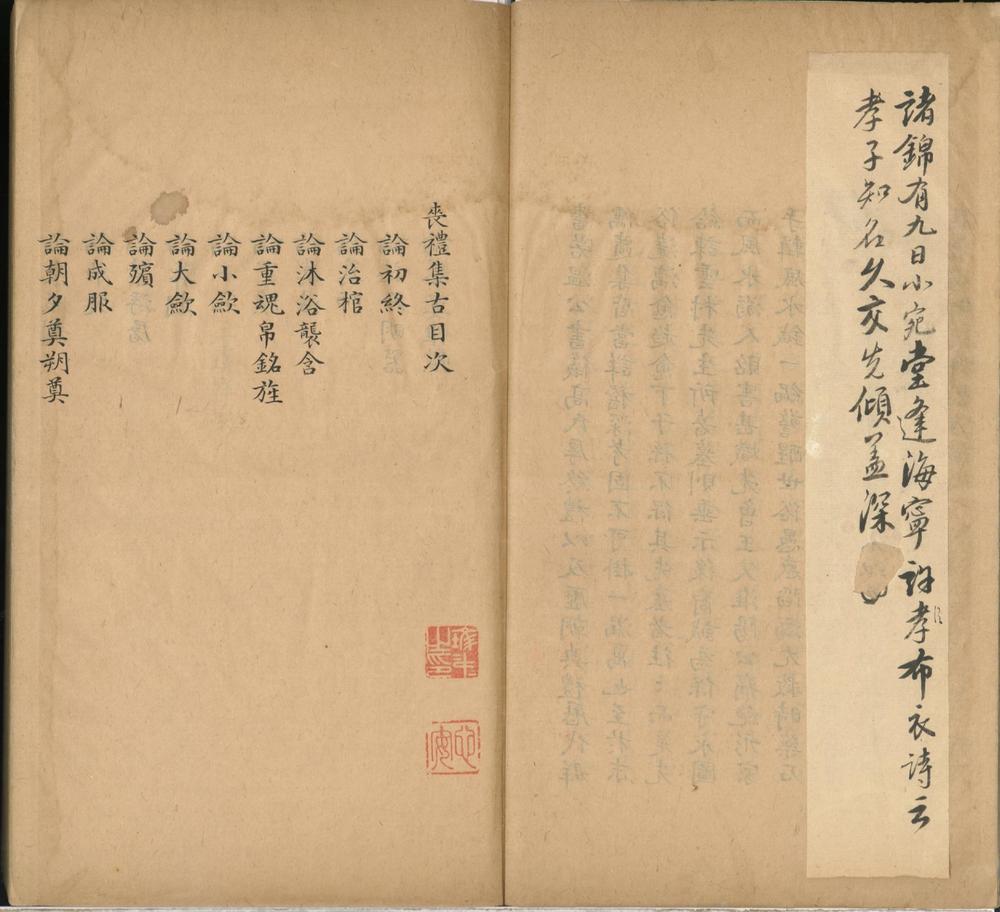 諸錦有九日小宛堂逢海寧許孝布衣詩云
孝子知名久交先傾盖深
喪禮集古目次
論初終
論治棺
論沐浴襲含
論重魂帛銘旌
論小歛
論大歛
論殯
論成服
論朝夕奠朔奠